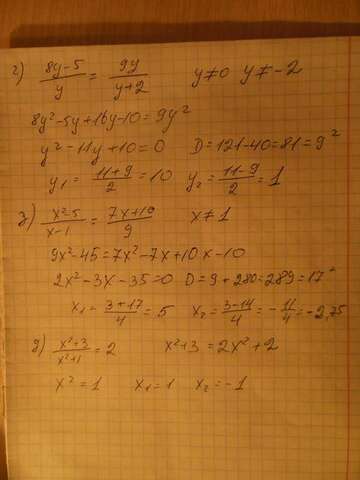 г) (8y-5)/y = 9y/(y+2) y≠0 y≠-2
8y²-5y+16y-10=9y²
y²-11y+10=0 D=121-40=81=9²
y₁=(11+9)/2=10 y₂=(11-9)/2=1
з) (x²-5)/(x-1)=(7x+10)/9 x≠1
9x²-45=7x²-7x+10x-10
2x²-3x-35=0 D=9+280=289=17²
x₁=(3+17)/4=5 x₂=(3-14)/4=-11/4=-2,75
g) (x²+3)/(x²+1)=2 x²+3=2x²+2
x²=1 x₁=1 x₂=-1